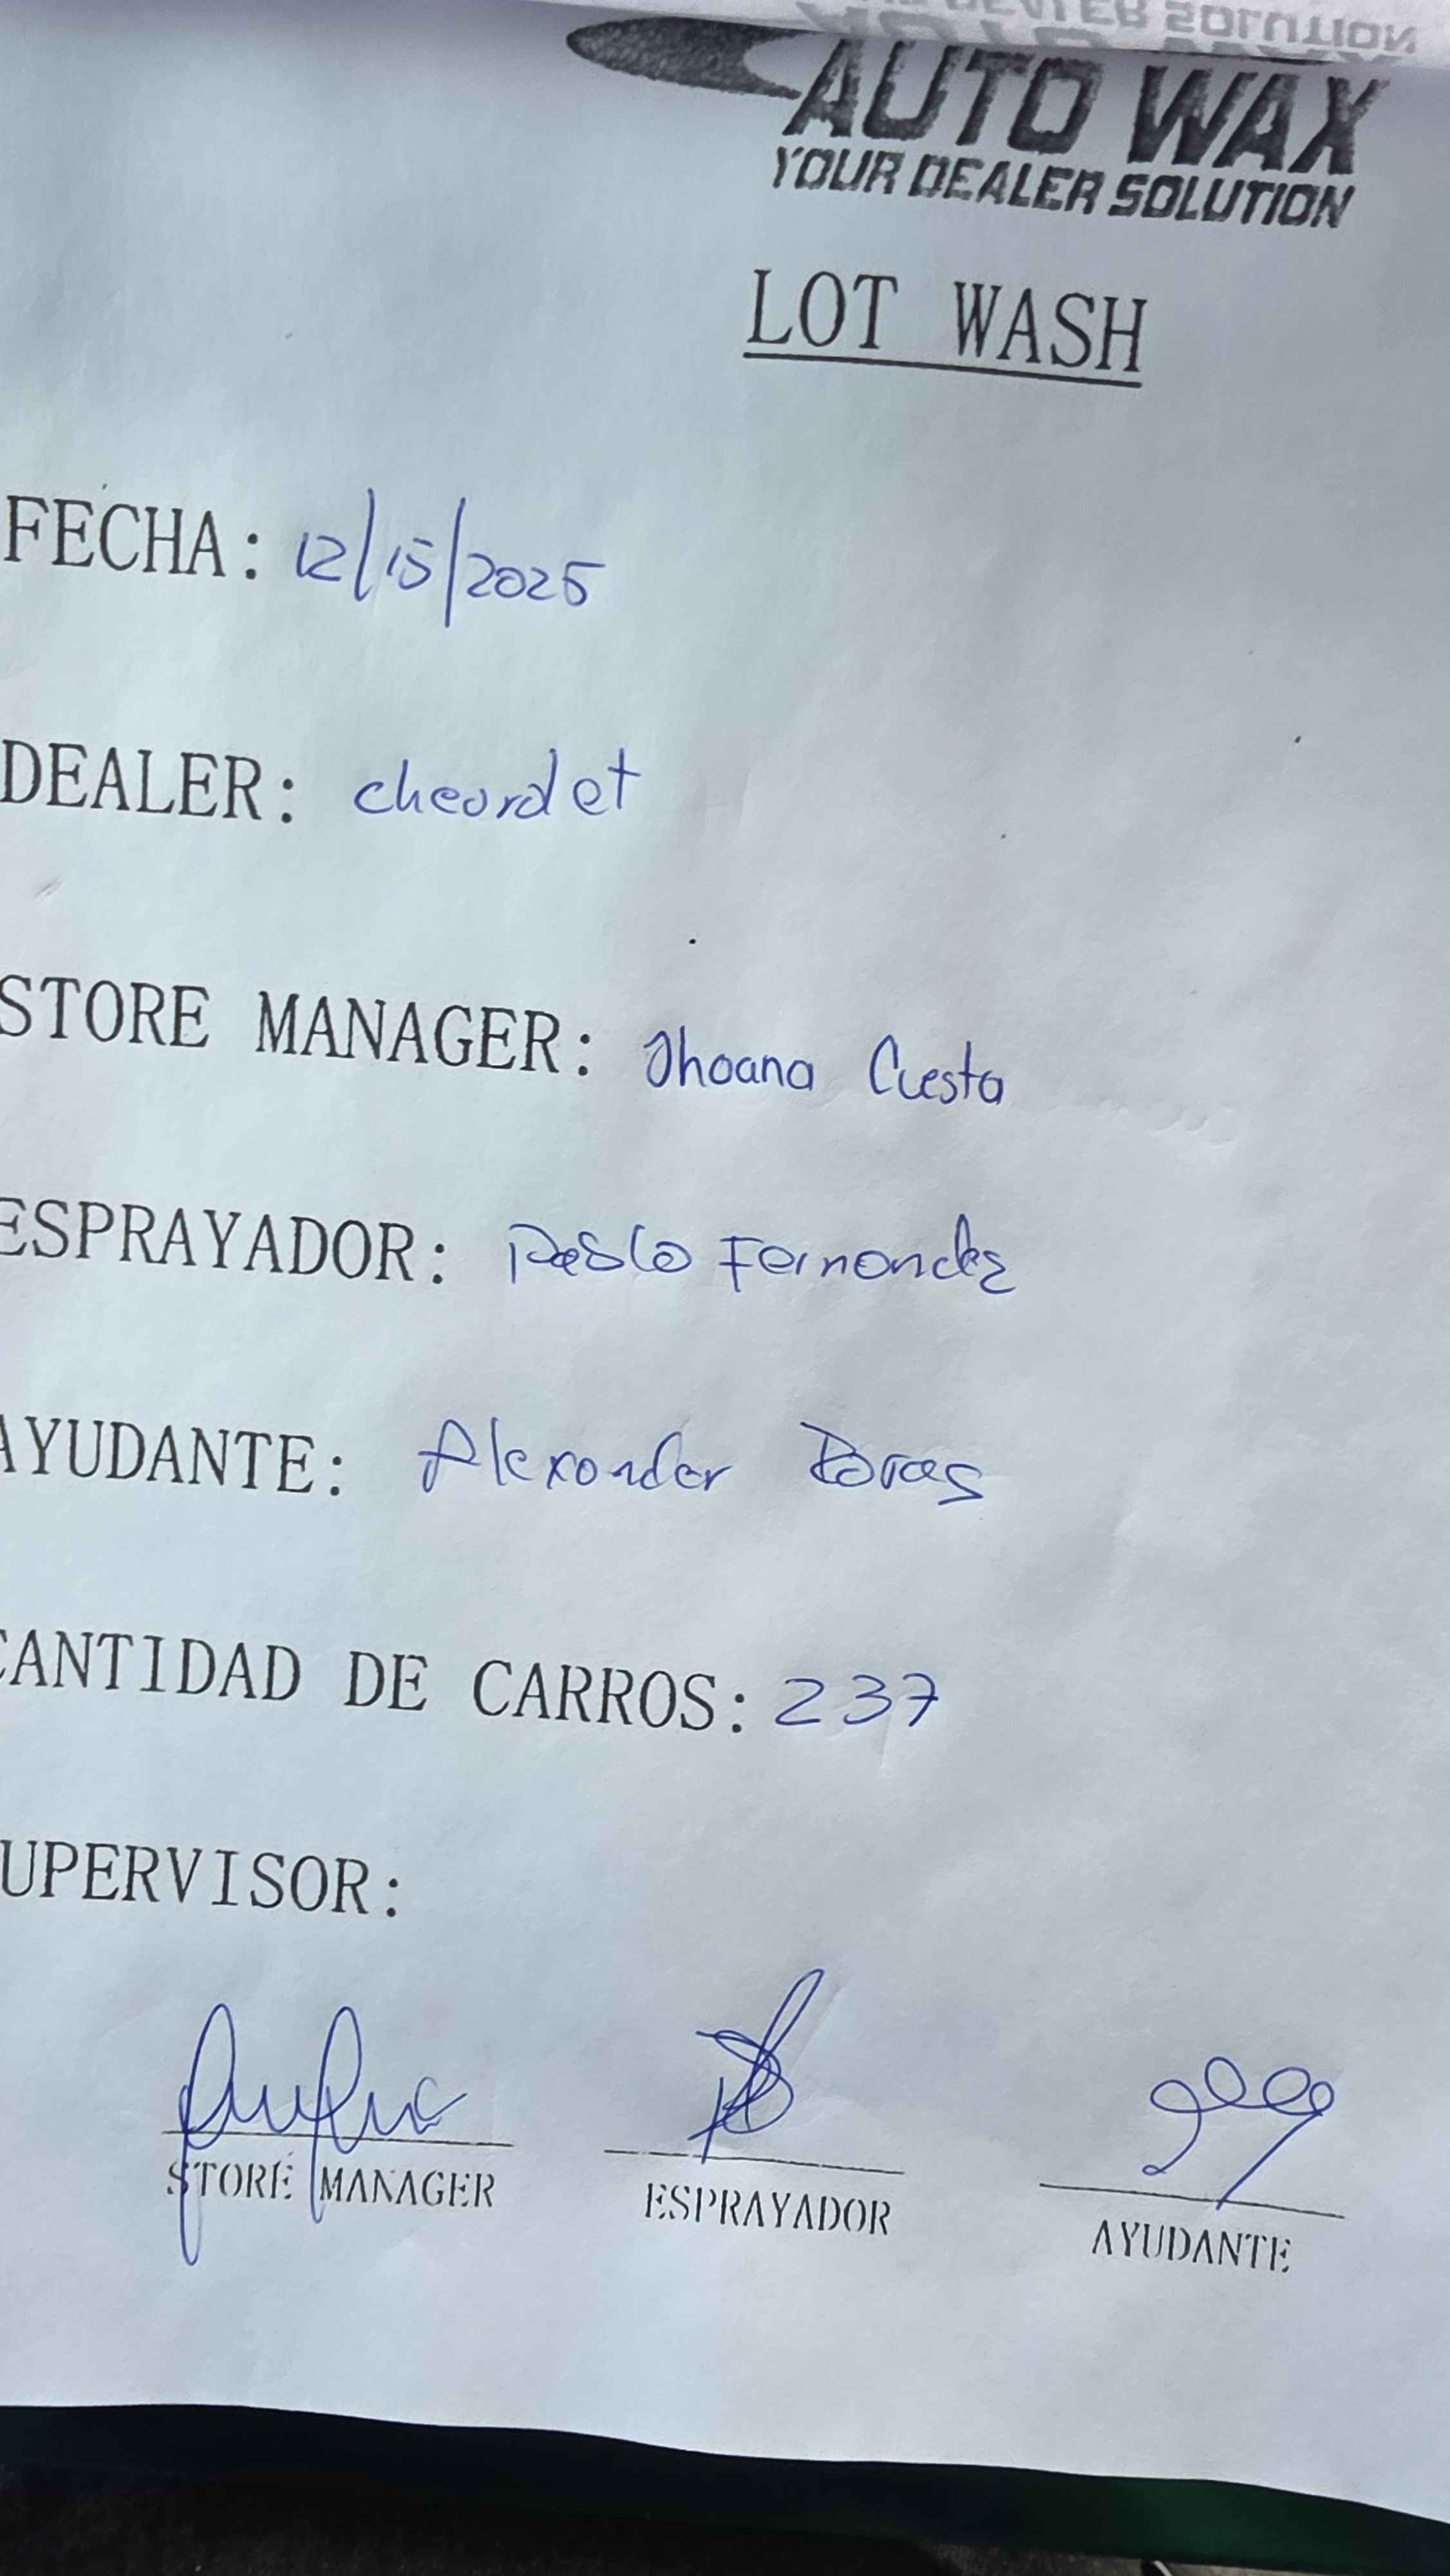 DEALER SOLUTION
AUTO WAX
YOUR DEALER SOLUTION
LOT WASH
FECHA: 12/15/2025
DEALER: cheurolet
STORE MANAGER: Jhoana Cuesta
ESPRAYADOR: Pablo Fernandez
AYUDANTE: Alexander
CANTIDAD DE CARROS: 237
SUPERVISOR:
STORE MANAGER ESPRAYADOR AYUDANTE